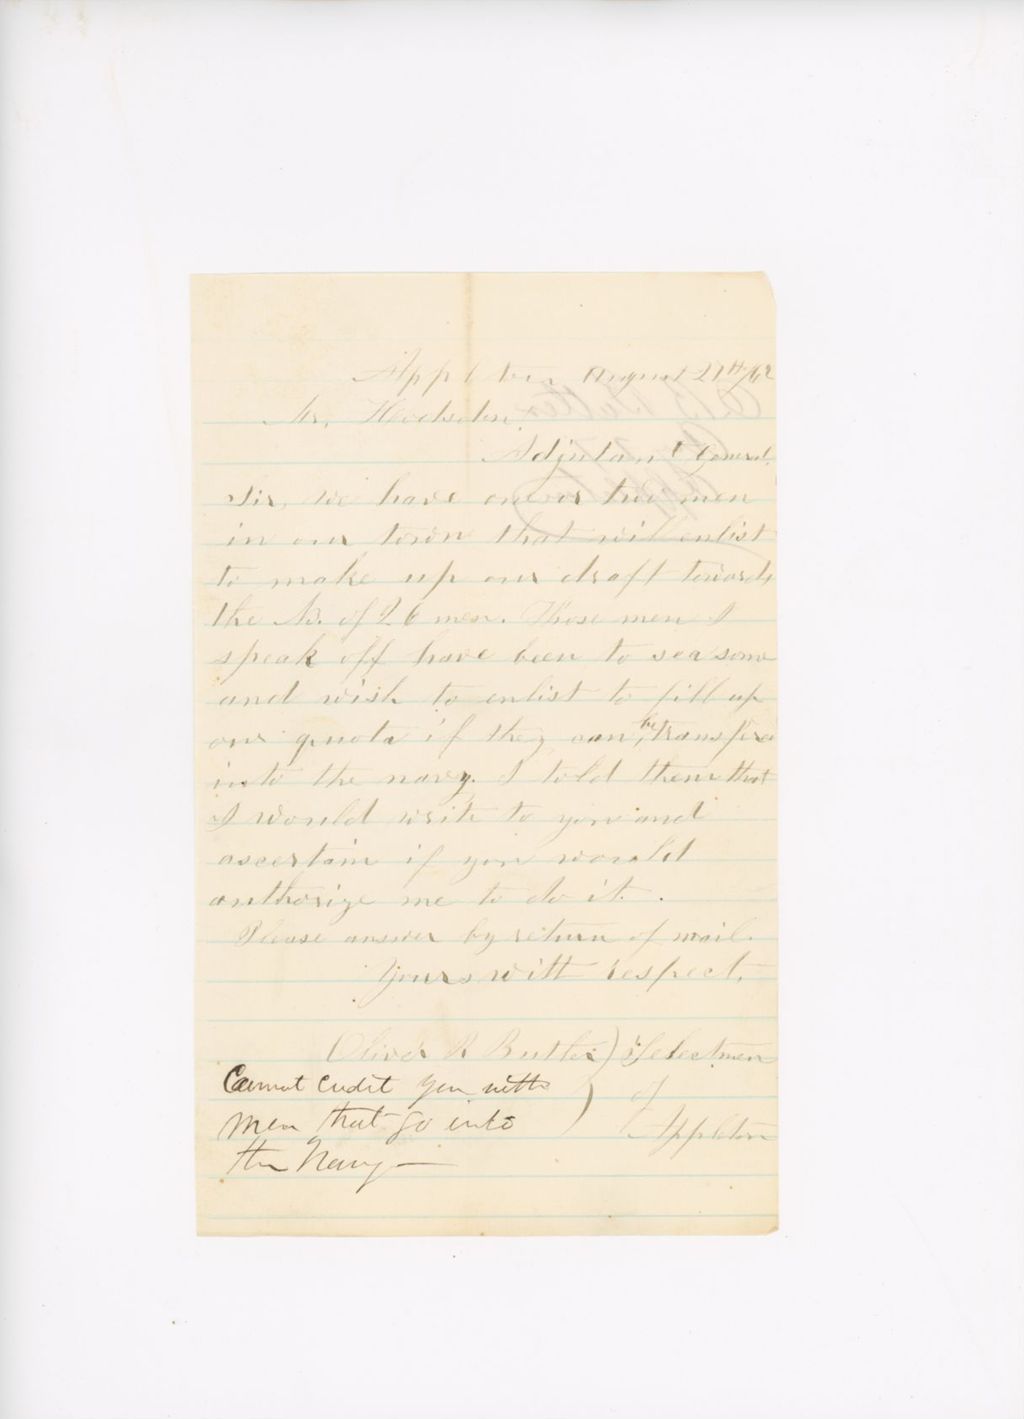 Appleton August 27th/62
Mr. Hodsdon
Adjutant General.
Sir, We have one or two men
in our town that will enlist
to make up our draft towards
the No. of 26 men. Those men I
speak off have been to sea some
and wish to enlist to fill up
our quota if they can, be transfered
into the navy. I told them that
I would write to you and
ascertain if you would
authorize me to do it.
Please answer by return of mail.
Yours with respect.
Oliver R Butler ) Selectmen
of
Appleton
Cannot credit you with
men that go into
the Navy —